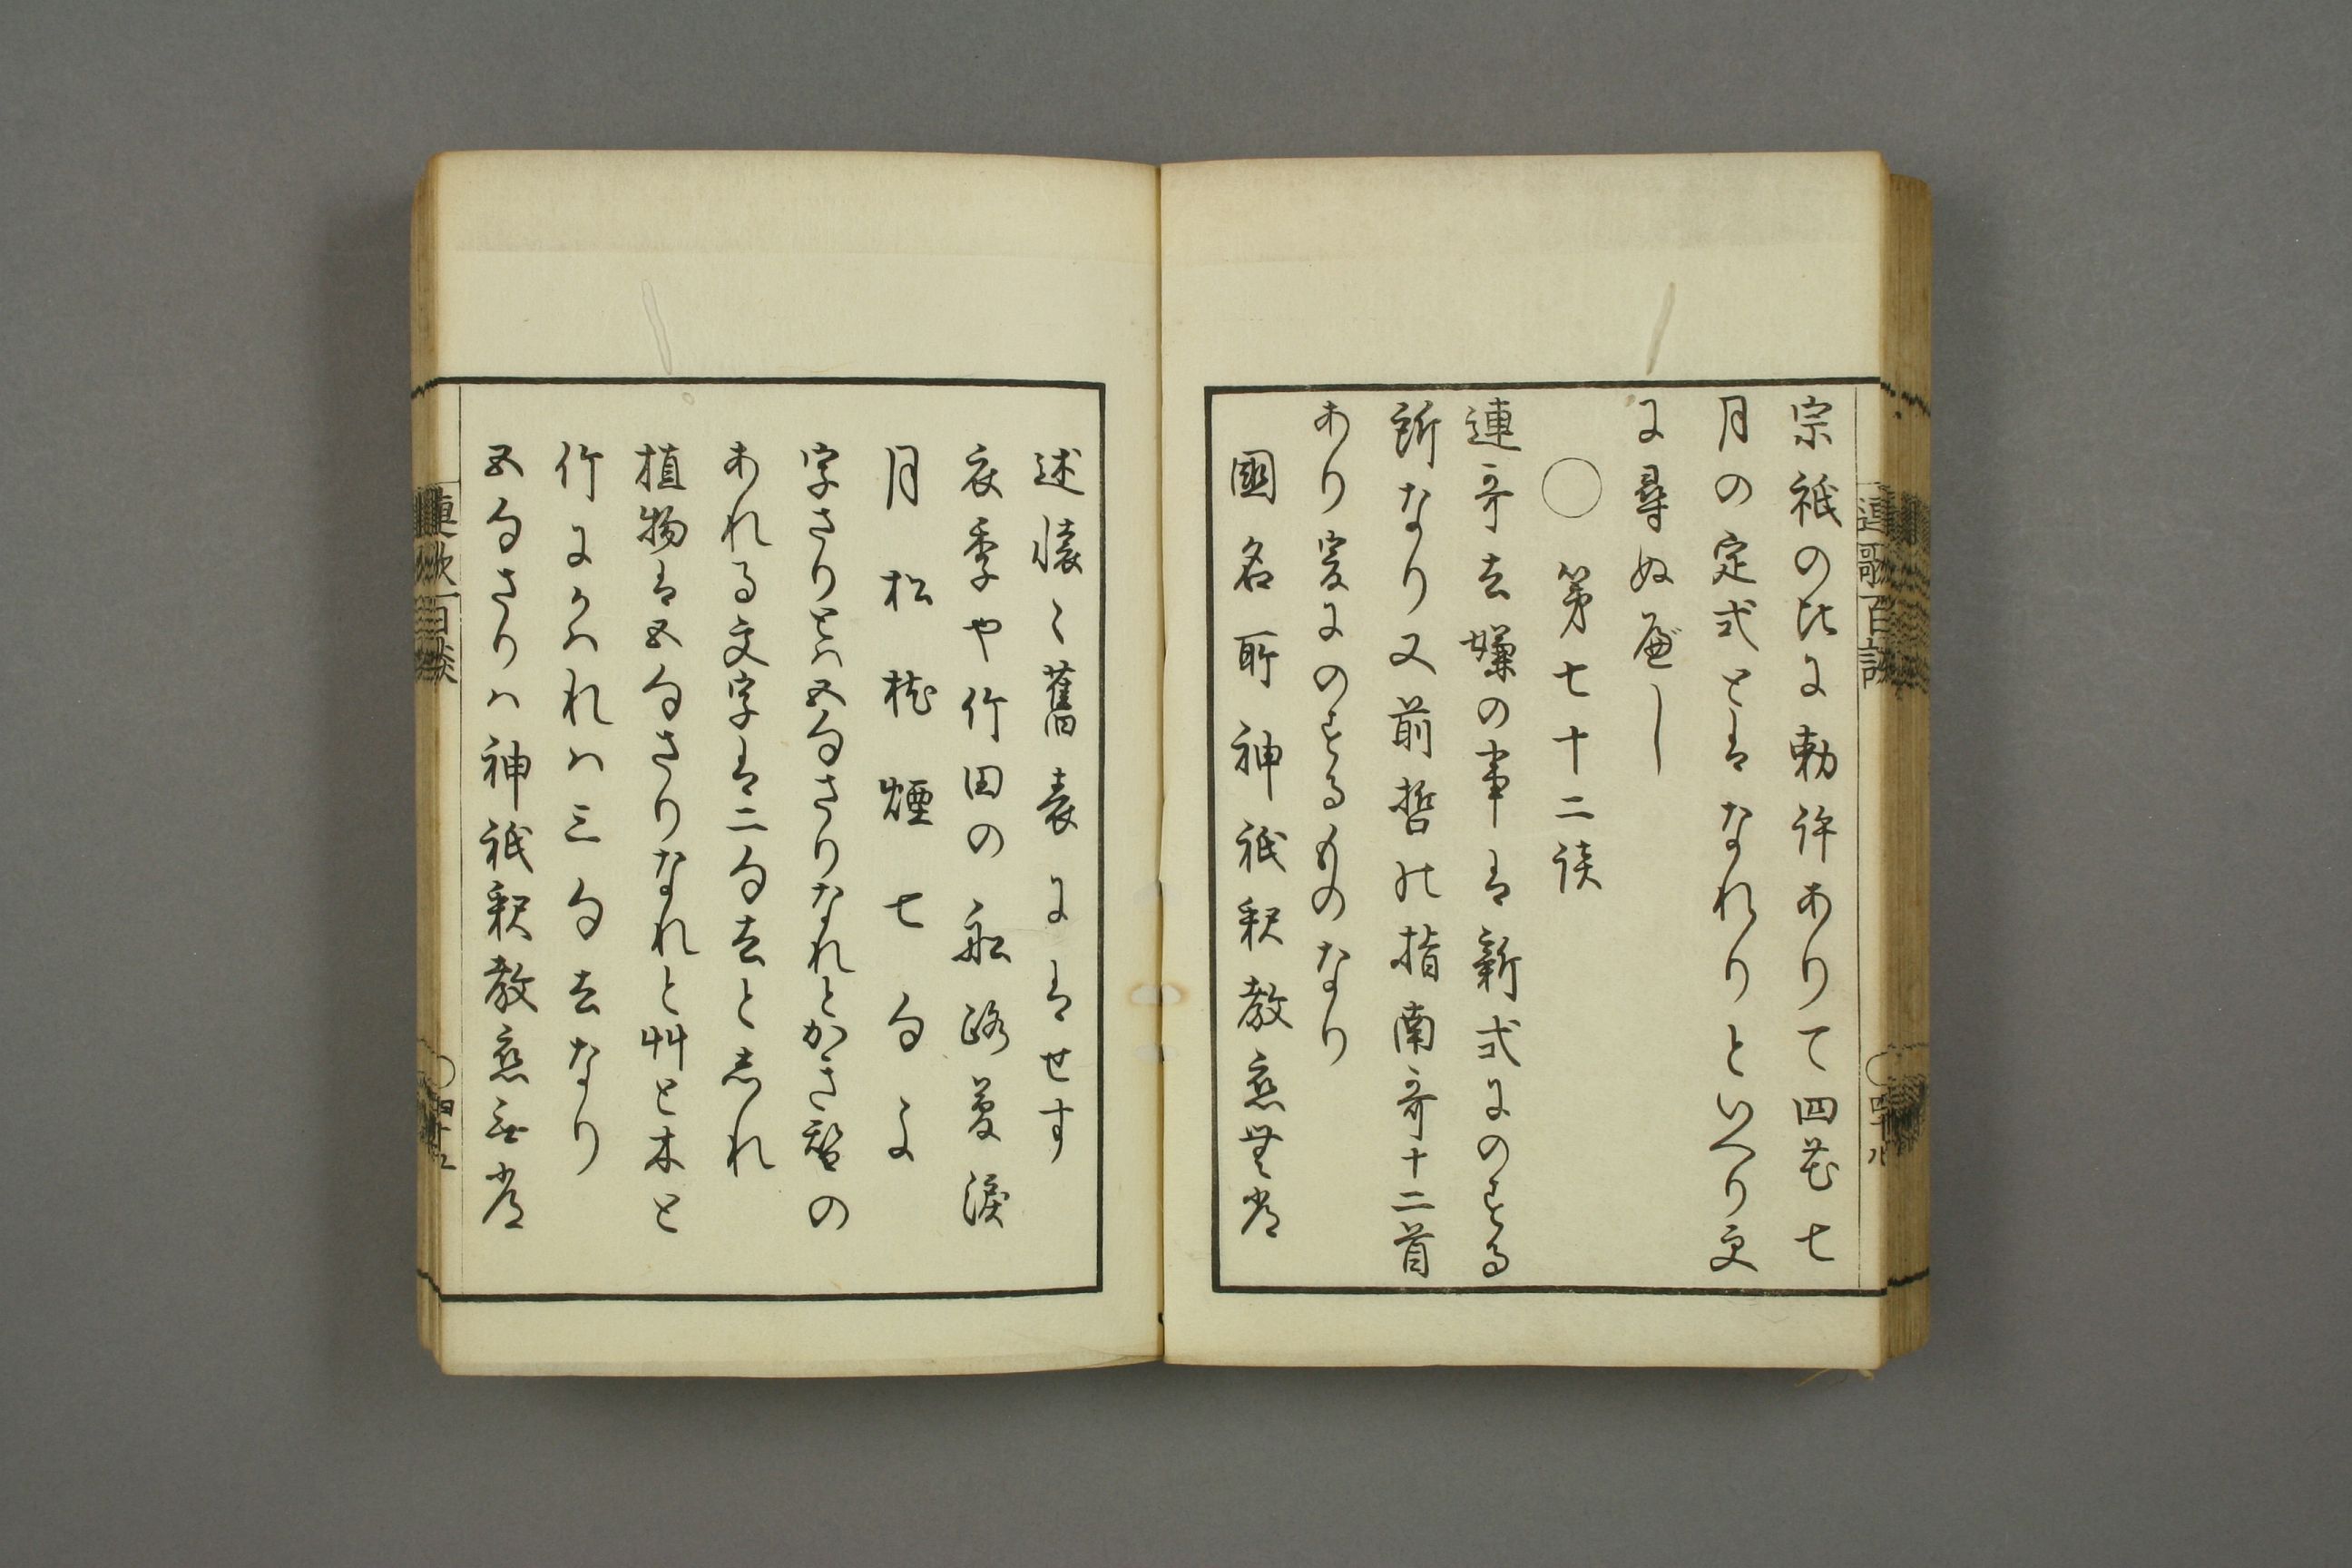 宗祇の比に勅許ありて四花七
月の定式とはなれりといへり更
に尋ぬべし
○第七十二談
連哥去嫌の事は新式にのする
所なり又前哲の指南哥十二首
あり爰にのするものなり
國名所神祇釈教恋無常
述懐〻舊表にはせす
衣季や竹田の船路夢涙
月松枕煙七句よ
字さりとハ五句さりなれとかき替の
あれる文字は二句去としれ
植物は五句さりなれと艸と木と
竹にかハれハ三句去なり
五句さりハ神祇釈教恋無常
連歌百談